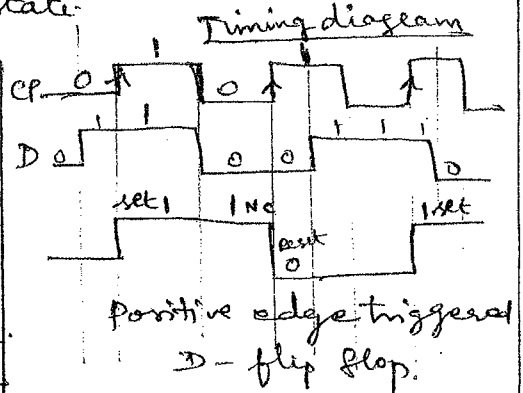 tate.
Timing diagram
CP 0 1 0 1
D 0 1 1 0 0 1 1 1 0
set 1 1 NC Reset 0 1 set
Positive edge triggered
D - flip flop.